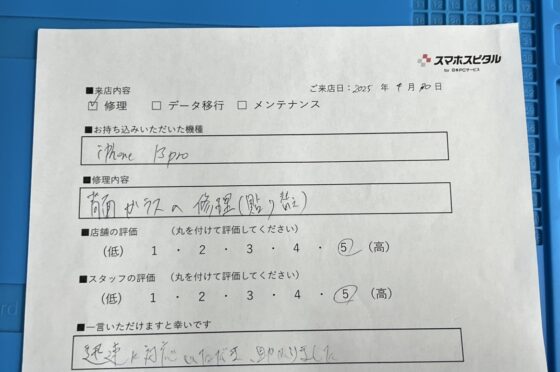 スマホスピタル
for 日本PCサービス
■来店内容
ご来店日：2025 年 9 月 20 日
☑ 修理 □ データ移行 □ メンテナンス
■お持ち込みいただいた機種
iPhone 13 pro
■修理内容
背面ガラスの修理(貼り替え)
■店舗の評価 （丸を付けて評価してください）
（低） 1 ・ 2 ・ 3 ・ 4 ・ 5 （高）
■スタッフの評価 （丸を付けて評価してください）
（低） 1 ・ 2 ・ 3 ・ 4 ・ 5 （高）
■一言いただけますと幸いです
迅速に対応いただき助かりました